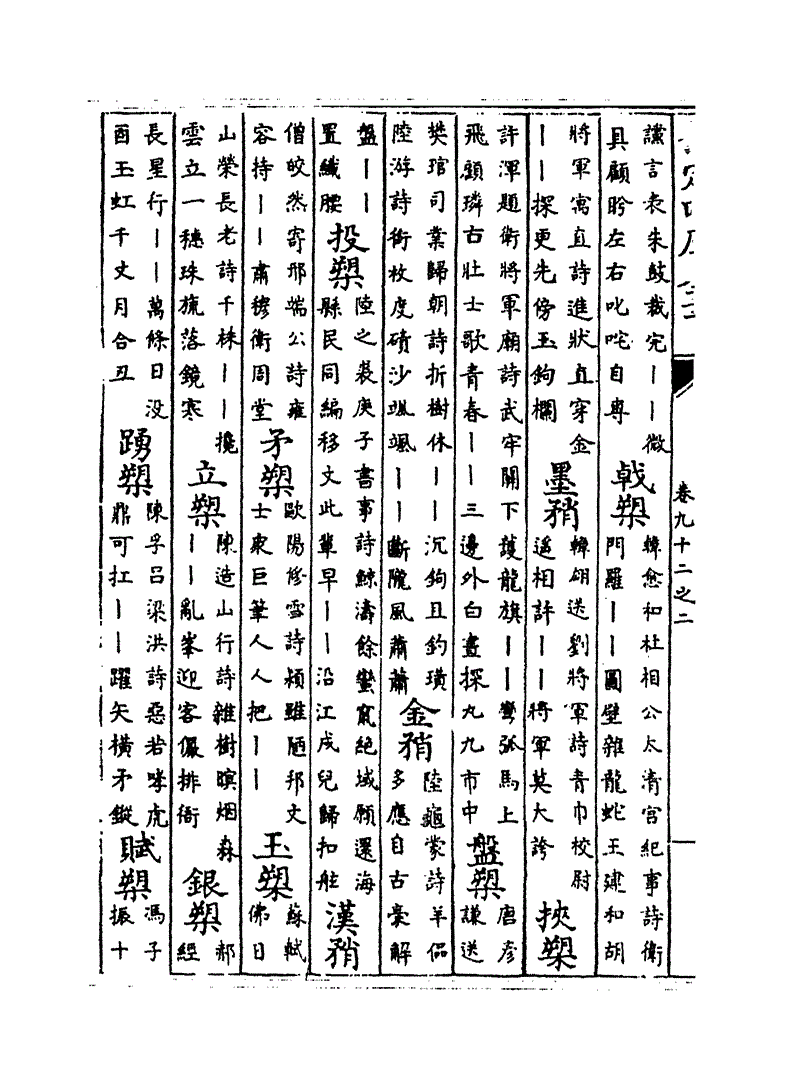 卷九十二之二
讜言表朱鼓裁完——微
具顧眄左右叱咤自專
戟槊
韓愈和杜相公太清宮紀事詩衛
門羅——圖壁雜龍蛇王建和胡
將軍寓直詩進狀直穿金
——探更先傍玉鉤欄
墨矟
韓翃送劉將軍詩青巾校尉
遥相許——將軍莫大誇
挾槊
許渾題衛將軍廟詩武牢關下護龍旗——彎弧馬上
飛顧璘古壯士歌青春——三邊外白晝探丸九市中
盤槊
唐彦
謙送
樊琯司業歸朝詩折樹休——沉鉤且釣璜
陸游詩銜枚度磧沙颯颯——斷隴風蕭蕭
金矟
陸龜蒙詩羊侶
多應自古豪解
盤——
置纖腰
投槊
陸之裘庚子書事詩鯨濤餘蠻竄絶域願還海
縣民同編移文此輩早——沿江戍兒歸扣舷
漢矟
僧皎然寄邢端公詩雍
容持——肅穆衛周堂
矛槊
歐陽修雪詩潁雖陋邦文
士衆巨筆人人把——
玉槊
蘇軾
佛日
山榮長老詩千株——攙
雲立一穗珠旒落鏡寒
立槊
陳造山行詩雜樹暝烟森
——亂峯迎客儼排衙
銀槊
郝
經
長星行——萬條日没
酉玉虹千丈月合丑
踴槊
陳孚吕梁洪詩惡若哮虎
鼎可扛——躍矢橫矛鏦
賦槊
馮子
振十